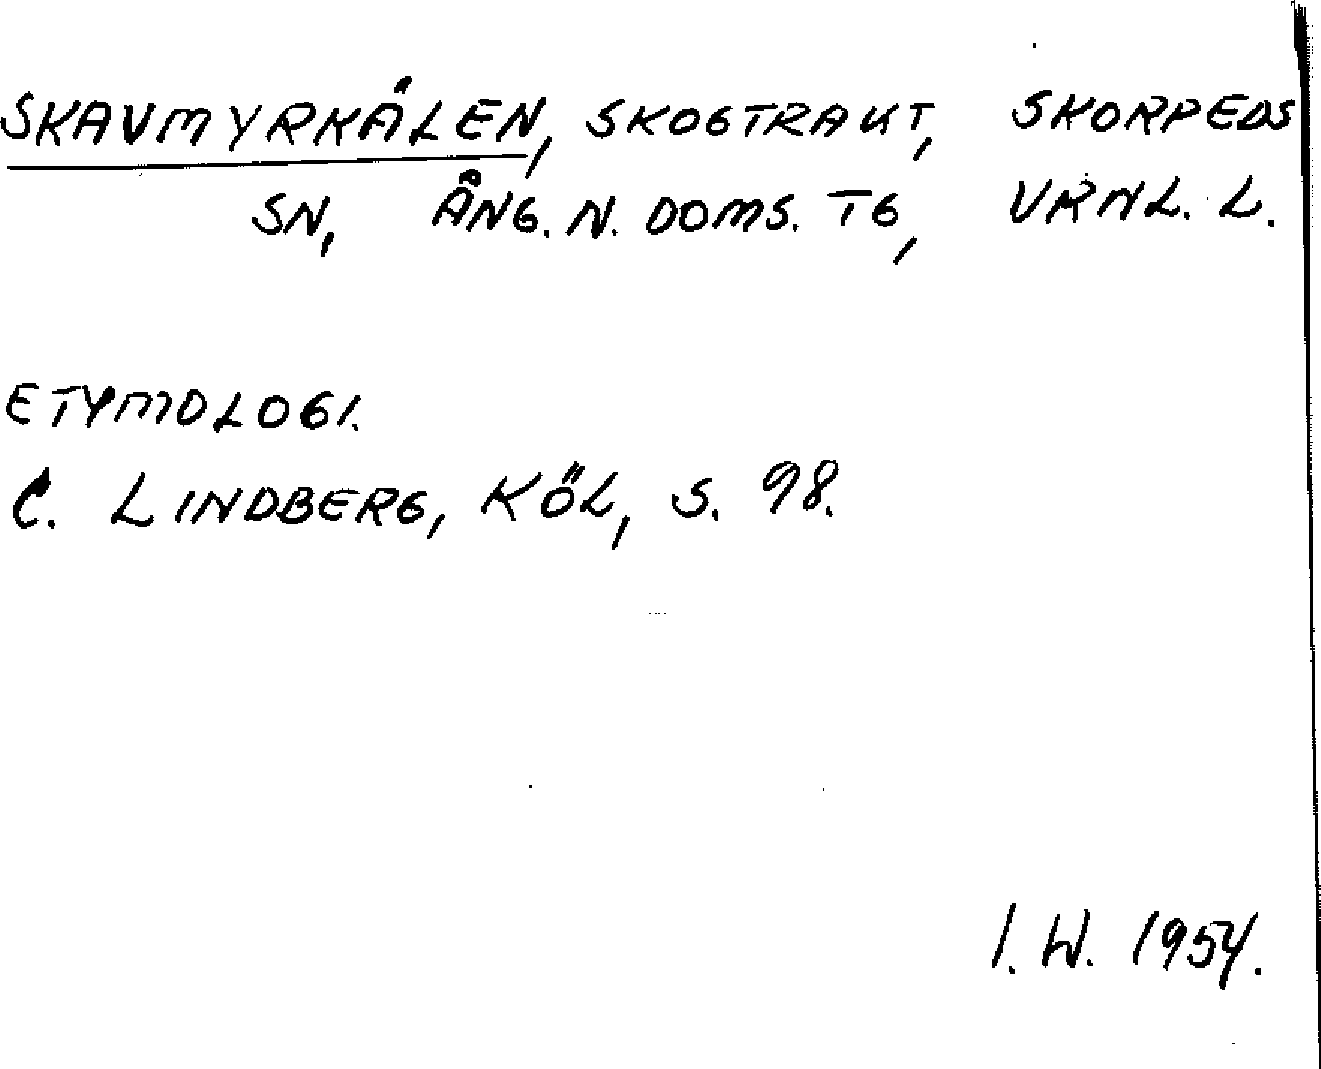 SKAVMYRKÅLEN, SKOGTRAKT, SKORPEDS
SN, ÅNG. N. DOMS. TG, VRNL. L.
ETYMOLOGI.
C. LINDBERG, KÖL, S. 98.
I. W. 1954.